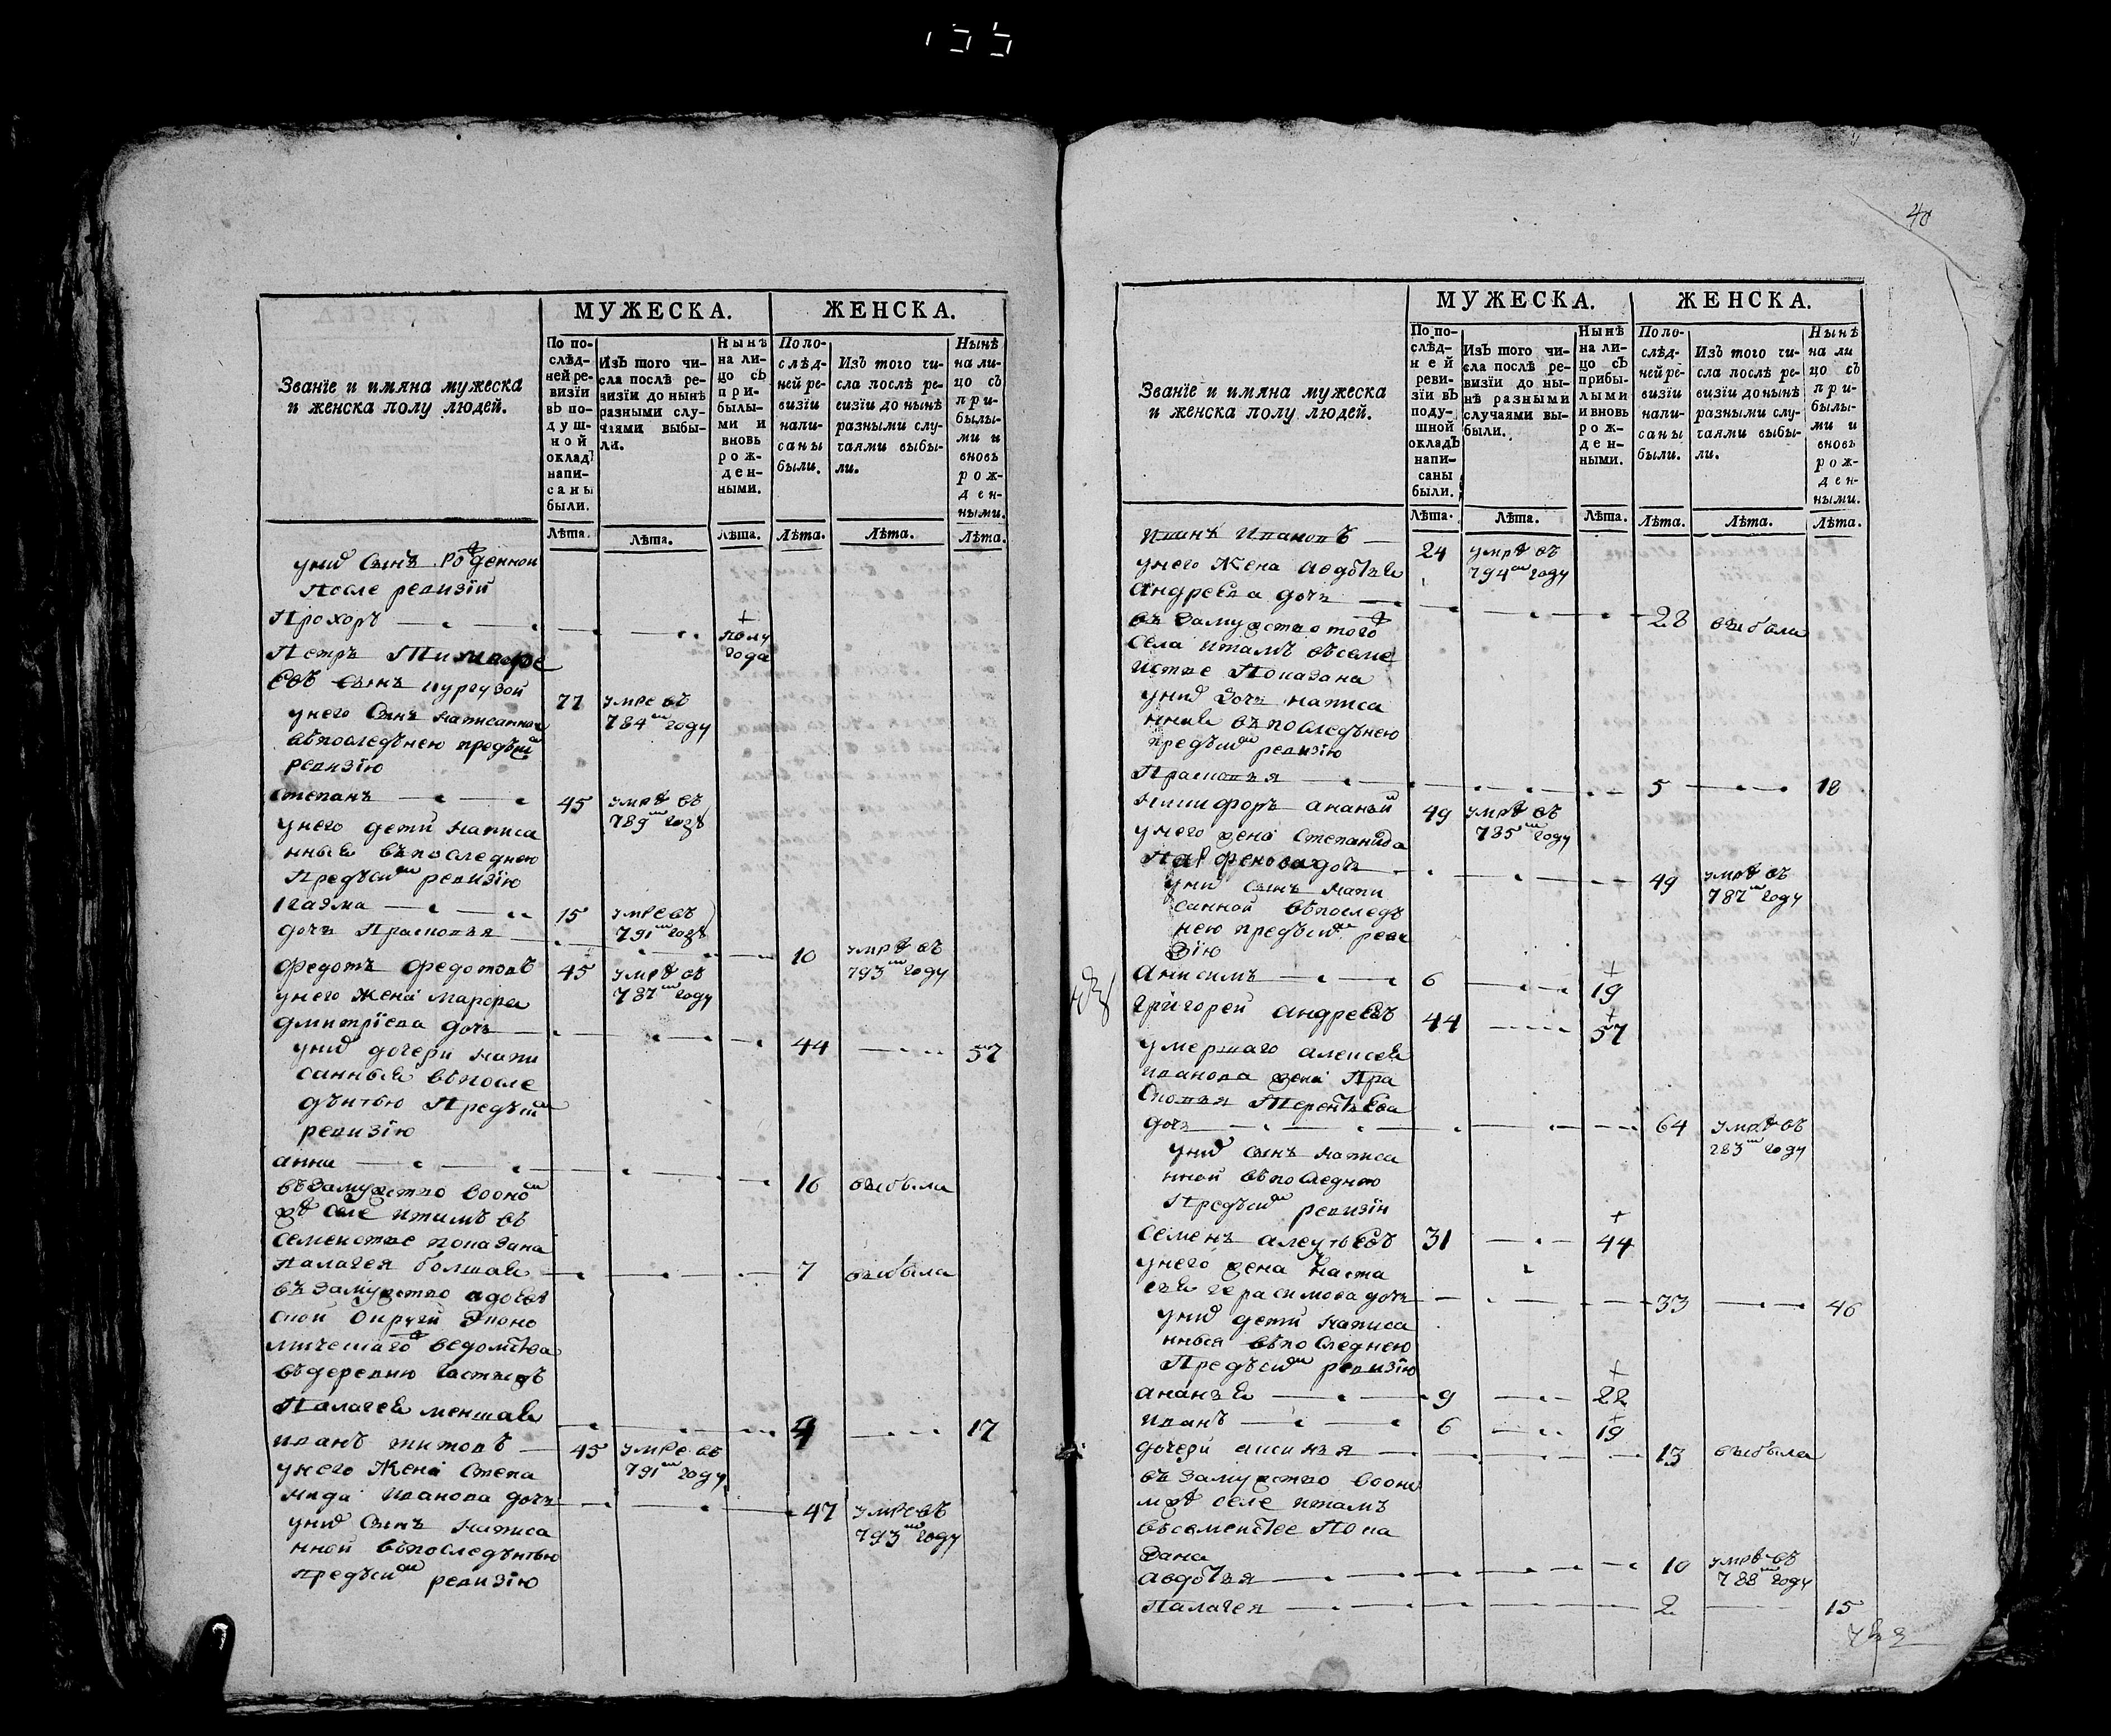 40
МУЖЕСКА. ЖЕНСКА.
Званїе и имяна мужеска
и женска полу людей.
По по-
слѣд-
ней ре-
визїи
въ по-
душ-
ной
окладъ
напи-
саны
были.
Изъ того чи-
сла послѣ ре-
визїи до нынѣ
разными слу-
чаями выбы-
ли.
Нынѣ
на ли-
цо съ
при-
былы-
ми и
вновь
рож-
ден-
ными.
По по-
слѣд-
ней ре-
визїи
напи-
саны
были.
Изъ того чи-
сла послѣ ре-
визїи до нынѣ
разными слу-
чаями выбы-
ли.
Нынѣ
на ли-
цо съ
при-
былы-
ми и
вновь
рож-
ден-
ными.
Лѣта. Лѣта. Лѣта. Лѣта. Лѣта. Лѣта.
уних сынъ рожденной
После ревизїи
Прохоръ + полу
года
Петръ Тимофе
евъ сынъ 77 умре въ
784м году
унего сынъ написанной
въпоследънею предъш
ревизїю
степанъ 45 умре въ
789м годѣ
унего дети написа
нныя въпоследнею
Предъсим ревизїю
Кадма 15 умре въ
791м годѣ
дочь Прасковья 10 умре въ
793м году
Федотъ Федотовъ 45 умре въ
787м году
унего жена марфа
дмитрїева дочь 44 57
уних дочери напи
санныя въпосле
дънюю Предъсим
ревизїю
анна 16 выбыла
въ замужство воном
же селе итамъ въ
семействе показана
палагея болшая 7 выбыла
въ замужство
ской округи Эконо
мическаго ведомства
въдеревню
Палагея меншая 4 17
иванъ титовъ 45 умре въ
791м году
унего Жена Степа
нида иванова дочь 47 умре въ
793м году
уних сынъ написа
нной въпоследънюю
предъсим ревизїю
МУЖЕСКА. ЖЕНСКА.
Званїе и имяна мужеска
и женска полу людей.
По по-
слѣд-
ней
реви-
зїи въ
поду-
шной
окладъ
напи-
саны
были.
Изъ того чи-
сла послѣ ре-
визїи до ны-
нѣ разными
случаями вы-
были.
Нынѣ
на ли-
цо съ
прибы-
лыми
и вновь
рож-
ден-
ными.
По по-
слѣд-
ней ре-
визїи
напи-
саны
были.
Изъ того чи-
сла послѣ ре-
визїи до нынѣ
разными слу-
чаями выбы-
ли.
Нынѣ
на ли
цо съ
при-
былы-
ми и
вновь
рож-
ден-
ными.
Лѣта. Лѣта. Лѣта. Лѣта. Лѣта. Лѣта.
иванъ Ивановъ 24 умре въ
794м году
унего Жена авдотья
андреева дочь 28 выбыла
въ замужство тогож
села итамъ въсеме
истве Показана
уних дочь написа
нная въпоследънею
предъсим ревизїю
Прасковья 5 18
никифоръ ананьи 49 умре въ
785м году
унего жена степанида
Парфенова дочь 49 умре въ
787м году
уних сынъ напи
санной въпоследъ
нею предъсим реви
зїю
анисимъ 6 + 19
григорей андреевъ 44 + 57
умершаго алексея
иванова жена Пра
сковья Терентьева
дочь 64 умре въ
783м году
уних сынъ написа
нной въпоследнею
Предъсим ревизїи
семенъ алексеевъ 31 + 44
унего жена наста
сья герасимова дочь 33 46
уних дети написа
нныя въпоследнею
Предъсим ревизїю
ананья 9 + 22
иванъ 6 + 19
дочери аксинья 13 выбыла
въ замужство воно
мже селе итамъ
въсемействе Пока
зана
авдотья 10 умре въ
788м году
палагея 2 15